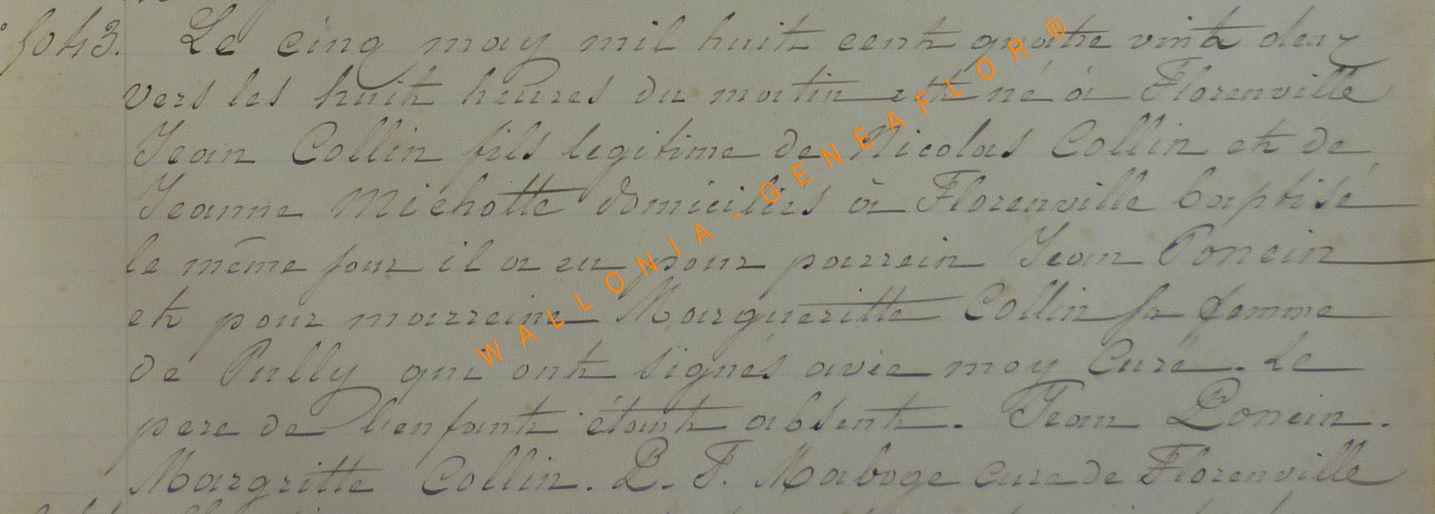 fo 43. Le cinq may mil huit cent quatre vint deux
vers les huit heures du matin est né à Florenville
Jean Collin fils legitime de Nicolas Collin et de
Jeanne Michotte domiciliés à Florenville baptisé
le même jour il a eu pour parrein Jean Poncin
et pour marreine Margueritte Collin sa femme
de Pully qui ont signés avec moy Curé. Le
pere de lenfant étant absent. Jean Poncin.
Margritte Collin. P. F. Maboge cure de Florenville
WALLONIA - GENEAFLOR ®